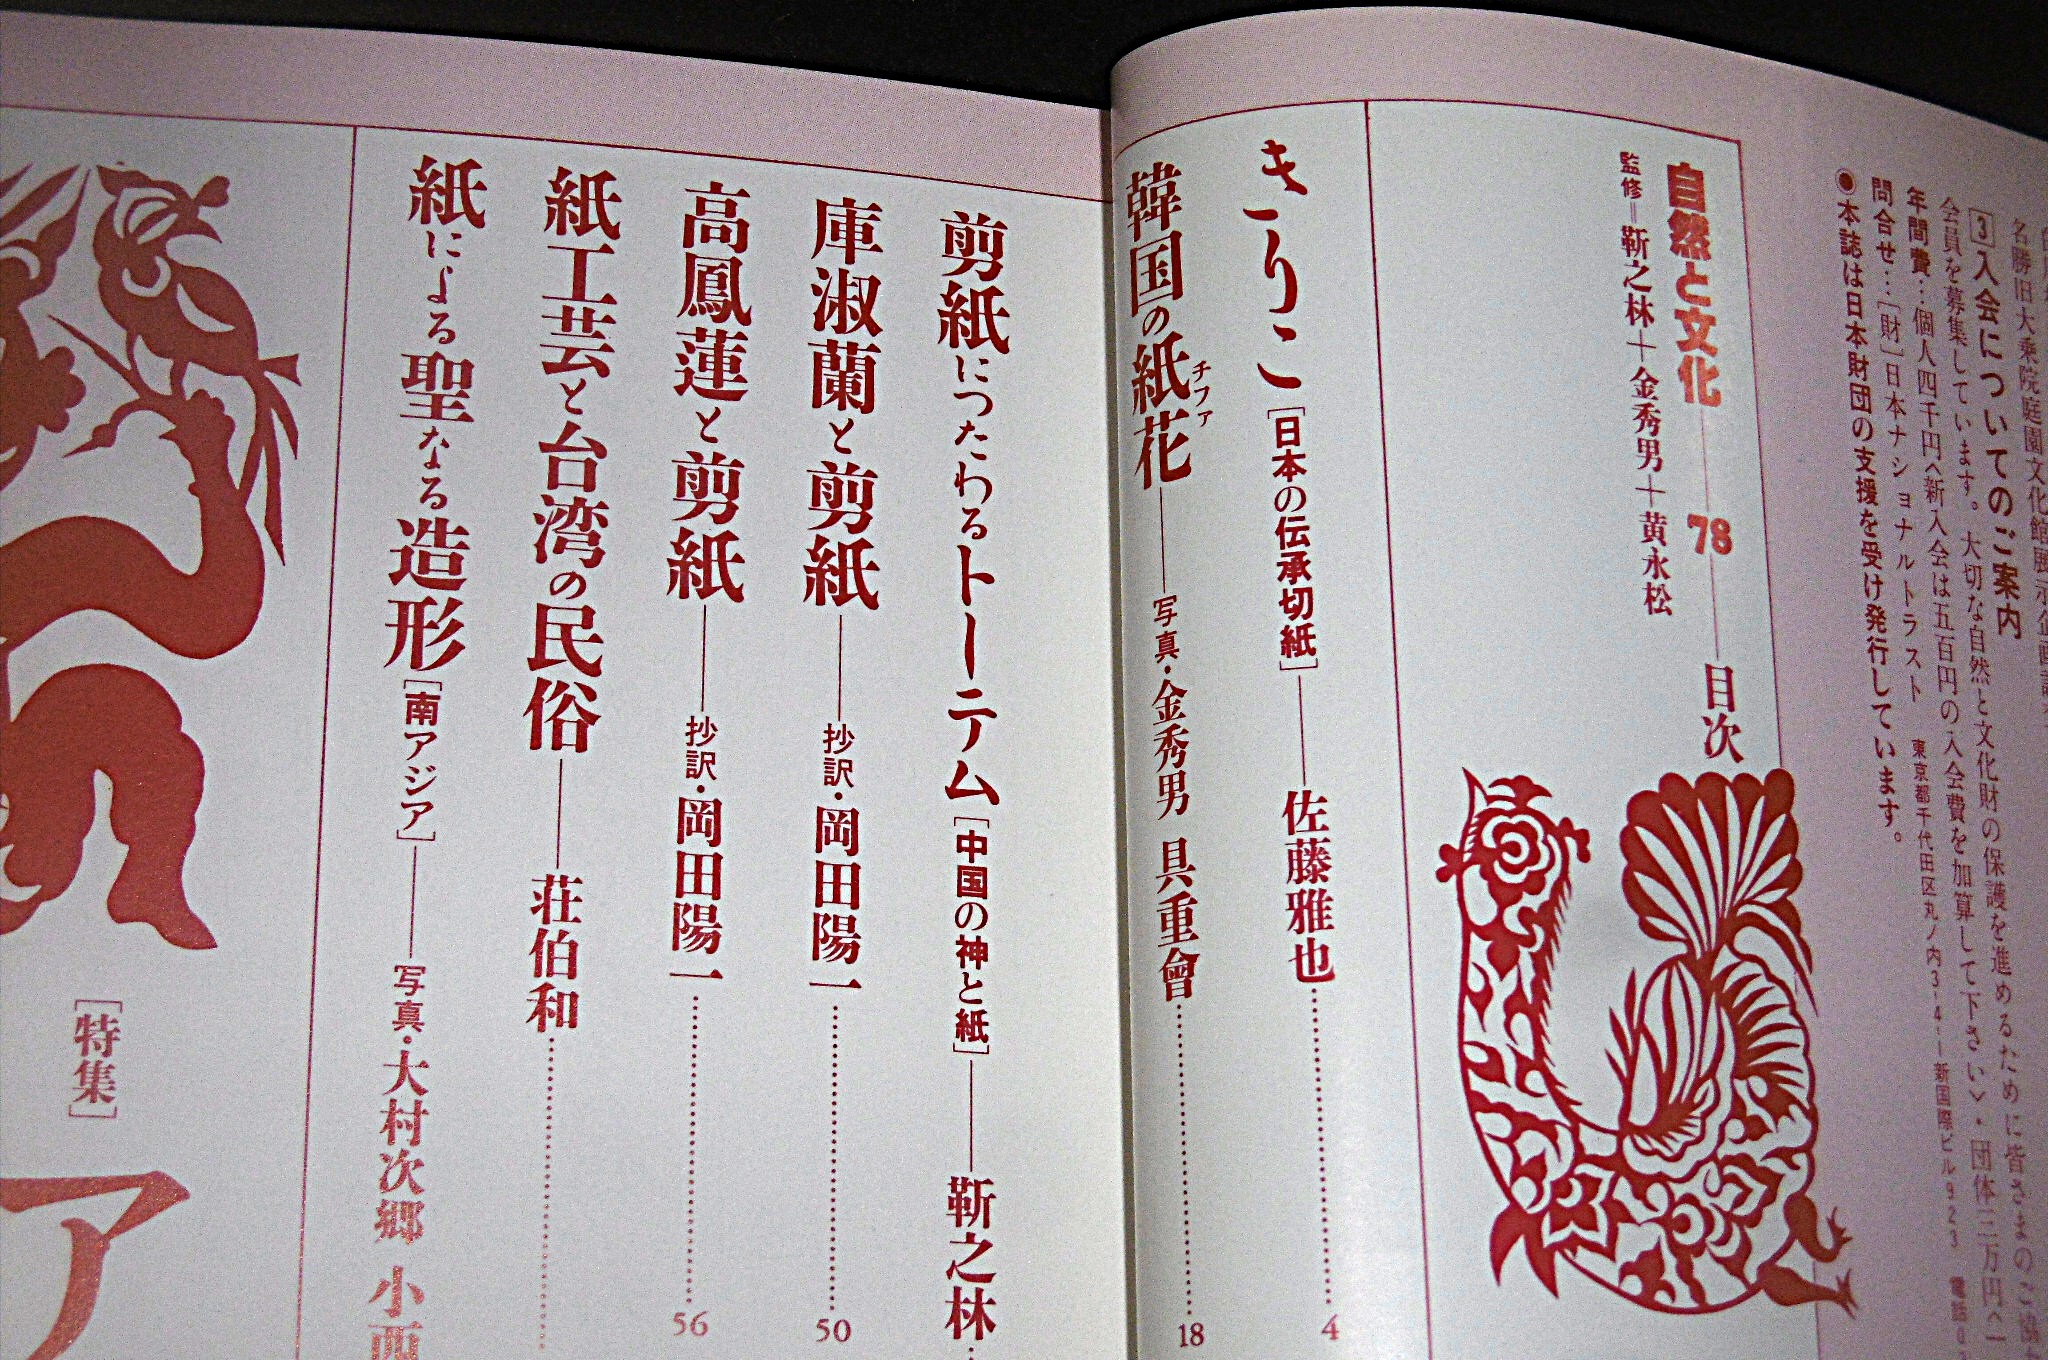 名勝旧大乗院庭園文化館展示企画
3入会についてのご案内
会員を募集しています。大切な自然と文化財の保護を進めるために皆さまのご協
年間費…個人四千円〈新入会は五百円の入会費を加算して下さい〉・団体三万円〈一
問合せ…[財]日本ナショナルトラスト 東京都千代田区丸ノ内3-4-1新国際ビル923 電話
●本誌は日本財団の支援を受け発行しています。
自然と文化 78 目次
監修=靳之林+金秀男+黄永松
きりこ[日本の伝承切紙]――佐藤雅也……4
韓国の紙花――写真・金秀男 具重會……18
チファ
剪紙につたわるトーテム[中国の神と紙]――靳之林…
庫淑蘭と剪紙――抄訳・岡田陽一……50
高鳳蓮と剪紙――抄訳・岡田陽一……56
紙工芸と台湾の民俗――荘伯和……
紙による聖なる造形[南アジア]――写真・大村次郷 小西
[特集]
ア